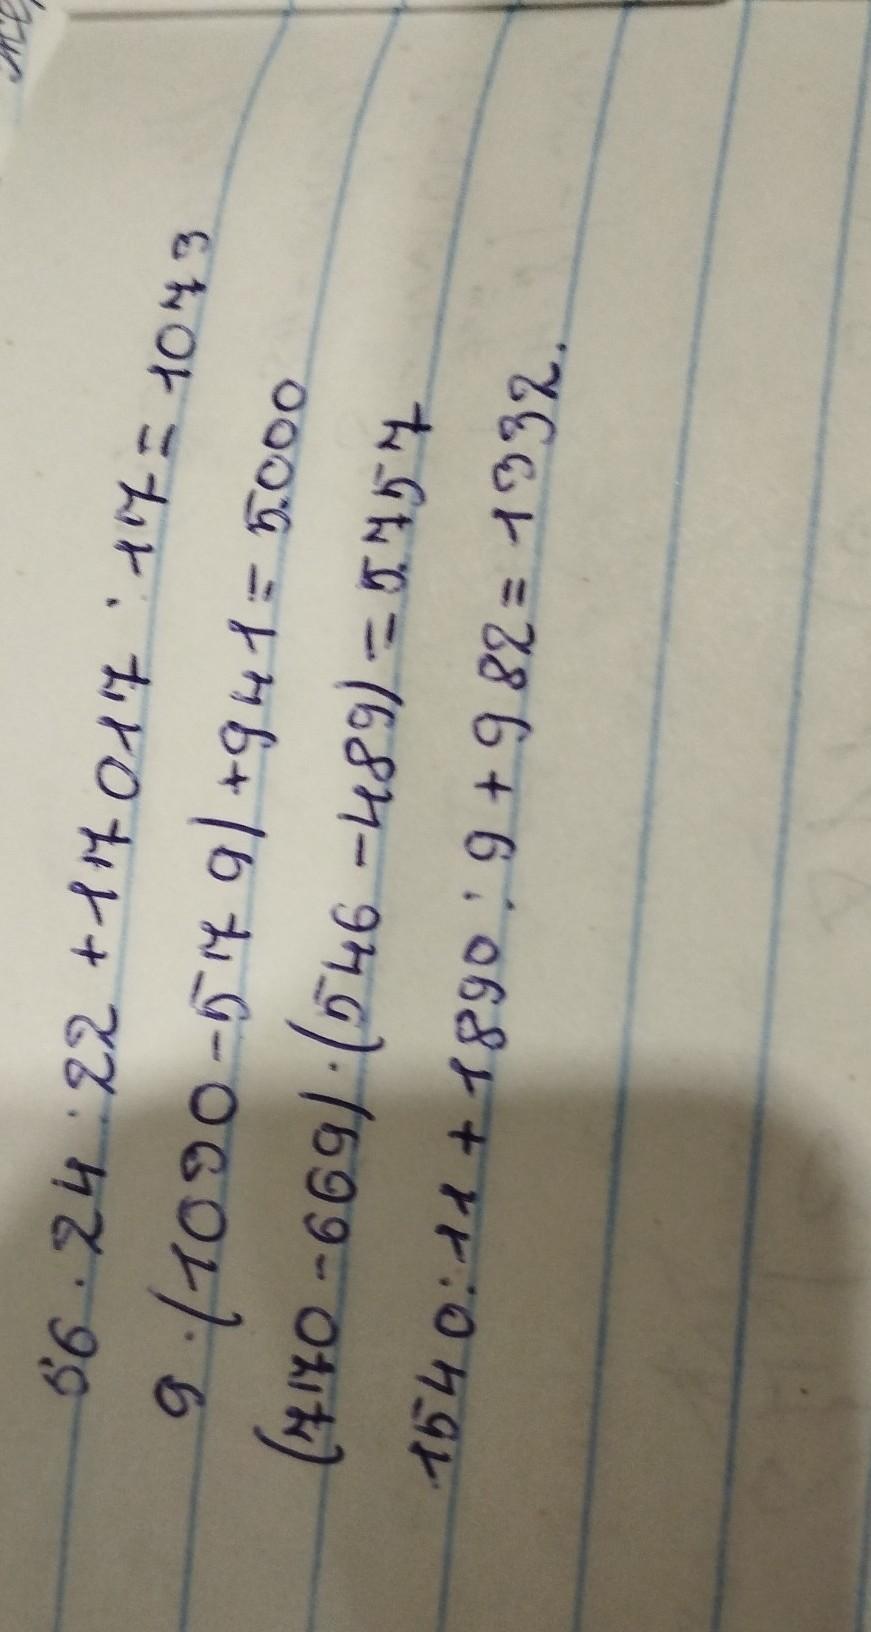 66 · 24 : 22 + 17 017 : 17 = 1073
9 · (1030 - 579) + 941 = 5000
(770 - 669) · (546 - 489) = 5757
1540 : 11 + 1890 : 9 + 982 = 1332.